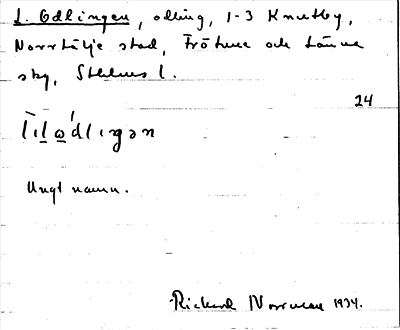 L. Odlingen, odling, 1-3 Knutby,
Norrtälje stad, Frötuna och Länna
skg, Sthlms l.
24
Ungt namn.
Richard Norrman 1934.